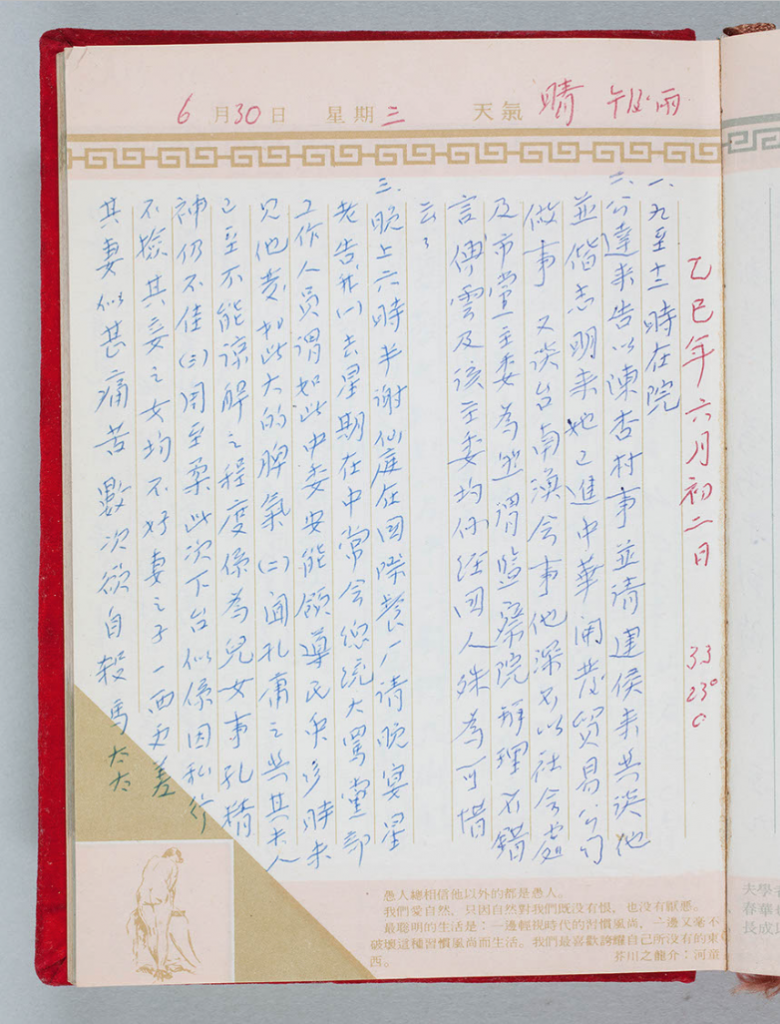 6月30日 星期三 天氣 晴 午後雨
乙巳年六月初二日 33 23° C
一、九至十二時在院
二、公達來告以陳杏村事並請建侯來共談他
並偕志明來她已進中華開發貿易公司
做事 又談台南漁会事他深不以社会處
及市黨主委為然謂監察院辦理不錯
言傅雲及該主委均係经国人殊為可惜
云々
三、晚上六時半謝仙庭在国際餐厂請晚宴星
老告我(一)去星期在中常会總統大罵黨部
工作人員謂如此中委安能領導民眾多時未
見他发如此大的脾氣(二)聞孔庸之與其夫人
已至不能諒解之程度係為兒女事孔精
神仍不佳(三)周至柔此次下台似係因私行
不檢其妾之女均不好妻之子一西更差
其妻似甚痛苦數次欲自殺馬太太
愚人總相信他以外的都是愚人。
我們愛自然，只因自然對我們既没有恨，也没有厭惡。
最聰明的生活是：一邊輕視時代的習慣風尚，一邊又毫不
破壞這種習慣風尚而生活。我們最喜歡誇耀自己所没有的東
西。 芥川之龍介：河童
夫學者
春華
長成